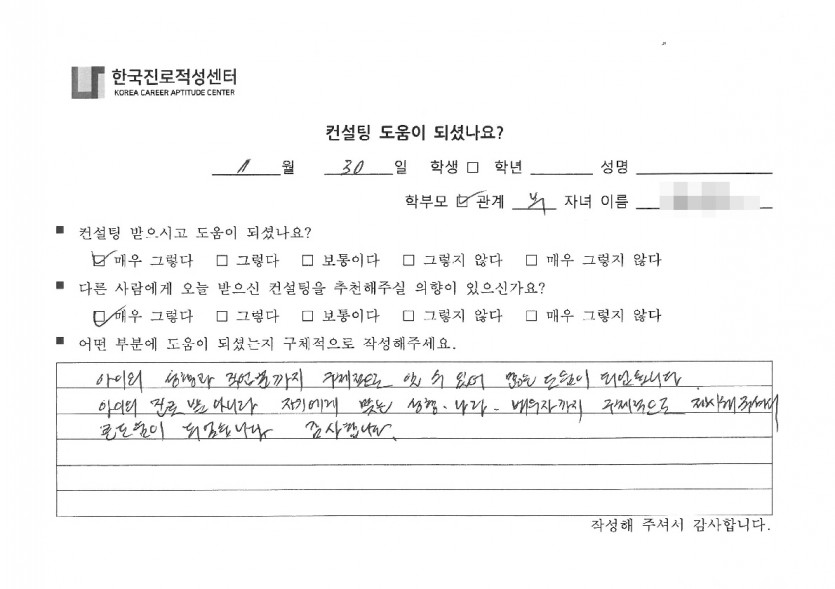 한국진로적성센터
KOREA CAREER APTITUDE CENTER
컨설팅 도움이 되셨나요?
11 월 30 일 학생 □ 학년 성명
학부모 ☑ 관계 부 자녀 이름
■ 컨설팅 받으시고 도움이 되셨나요?
☑ 매우 그렇다 □ 그렇다 □ 보통이다 □ 그렇지 않다 □ 매우 그렇지 않다
■ 다른 사람에게 오늘 받으신 컨설팅을 추천해주실 의향이 있으신가요?
☑ 매우 그렇다 □ 그렇다 □ 보통이다 □ 그렇지 않다 □ 매우 그렇지 않다
■ 어떤 부분에 도움이 되셨는지 구체적으로 작성해주세요.
아이의 성향과 직업별까지 구체적으로 알 수 있어 많은 도움이 되었습니다.
아이의 진로 뿐 아니라 자기에게 맞는 성향. 나라. 배우자까지 구체적으로 제시해주셔서
큰도움이 되었습니다. 감사합니다.
작성해 주셔시 감사합니다.